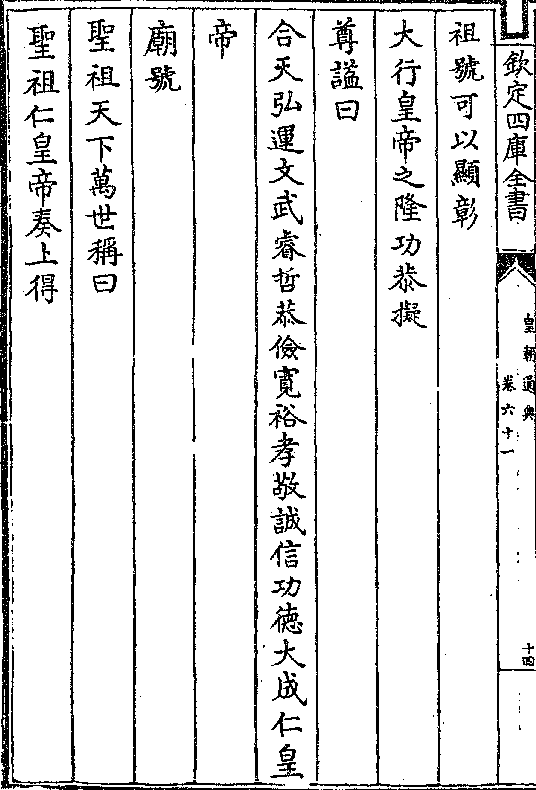 欽定四庫全書
皇朝通典
卷六十一
十四
祖號可以顯彰
大行皇帝之隆功恭擬
尊謚曰
合天弘運文武睿哲恭儉寛裕孝敬誠信功德大成仁皇
帝
廟號
聖祖天下萬世稱曰
聖祖仁皇帝奏上得